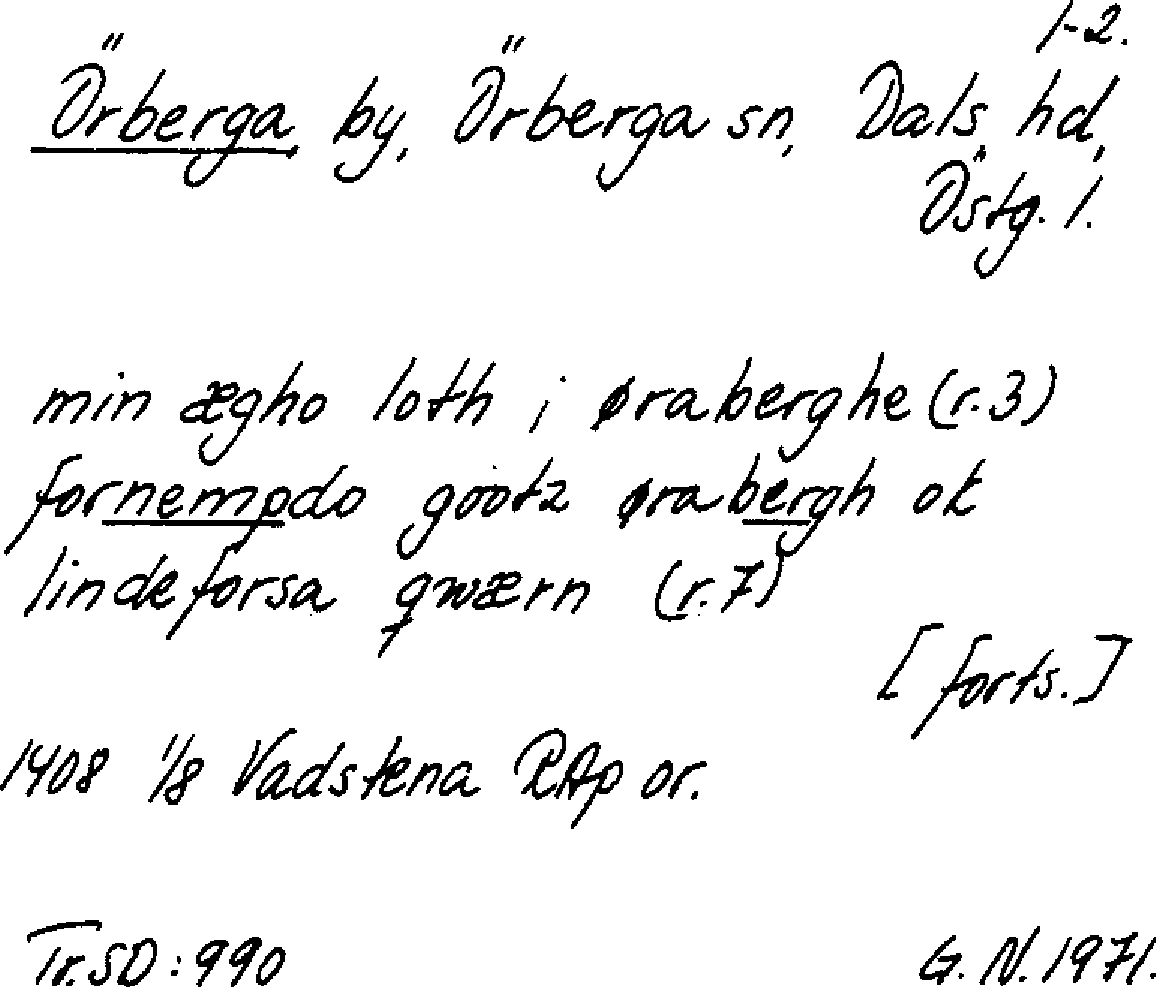 1-2.
Örberga by, Örberga sn, Dals hd,
Östg. l.
min ægho loth i øraberghe (r.3)
fornempdo gootz ørabergh ok
lindeforsa qwærn (r.7)
[forts.]
1408 1/8 Vadstena RAp or.
Tr. SD: 990
G. N. 1971.